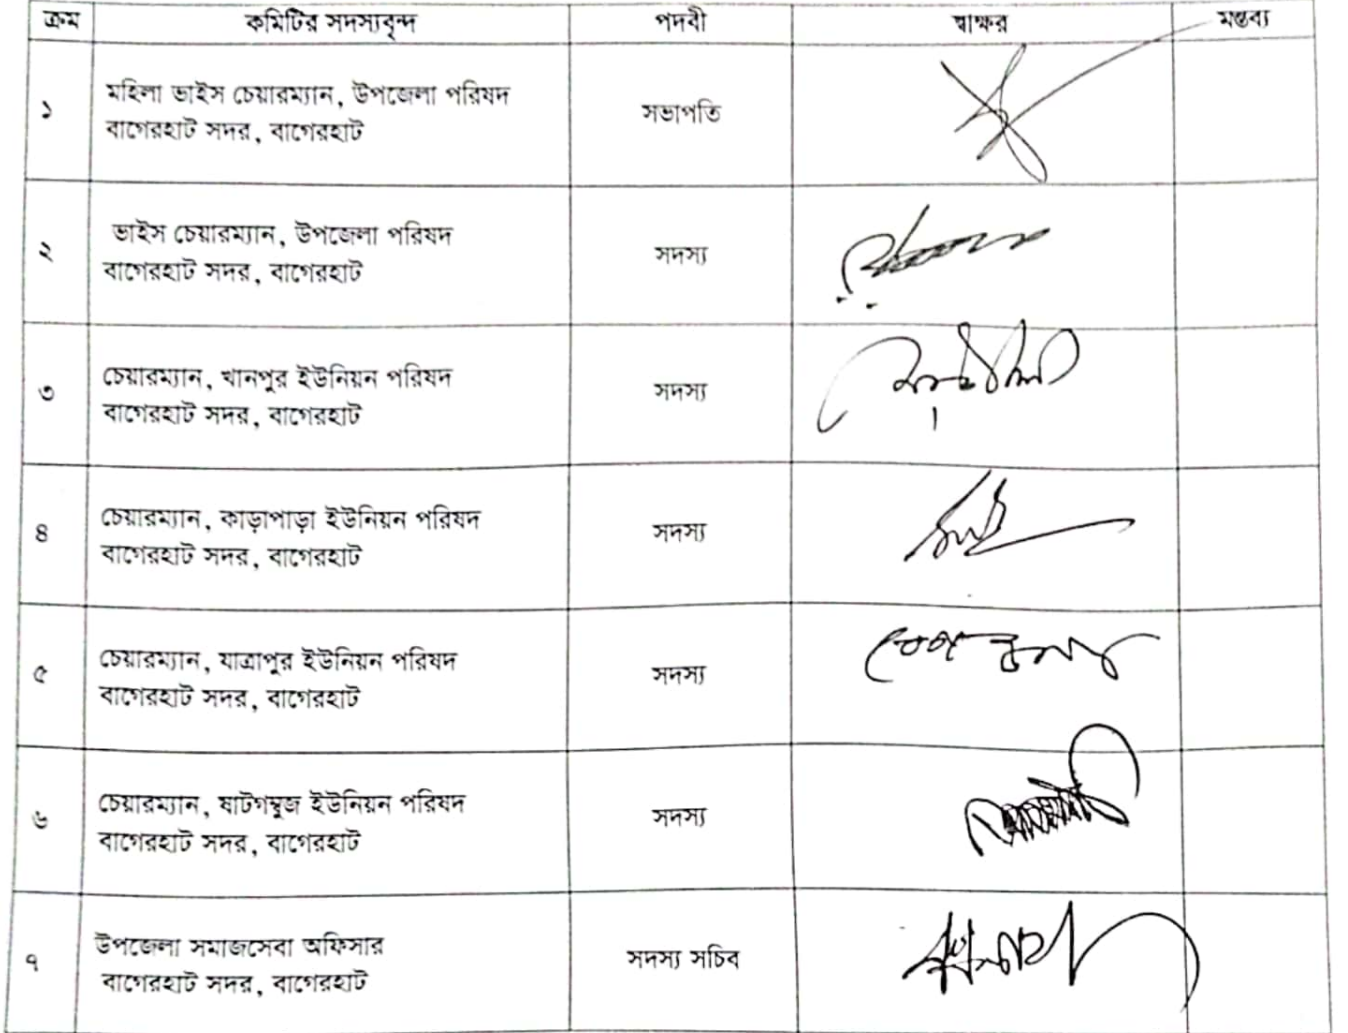 ক্রম কমিটির সদস্যবৃন্দ পদবী স্বাক্ষর মন্তব্য
১ মহিলা ভাইস চেয়ারম্যান, উপজেলা পরিষদ
বাগেরহাট সদর, বাগেরহাট
সভাপতি
২ ভাইস চেয়ারম্যান, উপজেলা পরিষদ
বাগেরহাট সদর, বাগেরহাট
সদস্য
৩ চেয়ারম্যান, খানপুর ইউনিয়ন পরিষদ
বাগেরহাট সদর, বাগেরহাট
সদস্য
৪ চেয়ারম্যান, কাড়াপাড়া ইউনিয়ন পরিষদ
বাগেরহাট সদর, বাগেরহাট
সদস্য
৫ চেয়ারম্যান, যাত্রাপুর ইউনিয়ন পরিষদ
বাগেরহাট সদর, বাগেরহাট
সদস্য
৬ চেয়ারম্যান, ষাটগম্বুজ ইউনিয়ন পরিষদ
বাগেরহাট সদর, বাগেরহাট
সদস্য
৭ উপজেলা সমাজসেবা অফিসার
বাগেরহাট সদর, বাগেরহাট
সদস্য সচিব